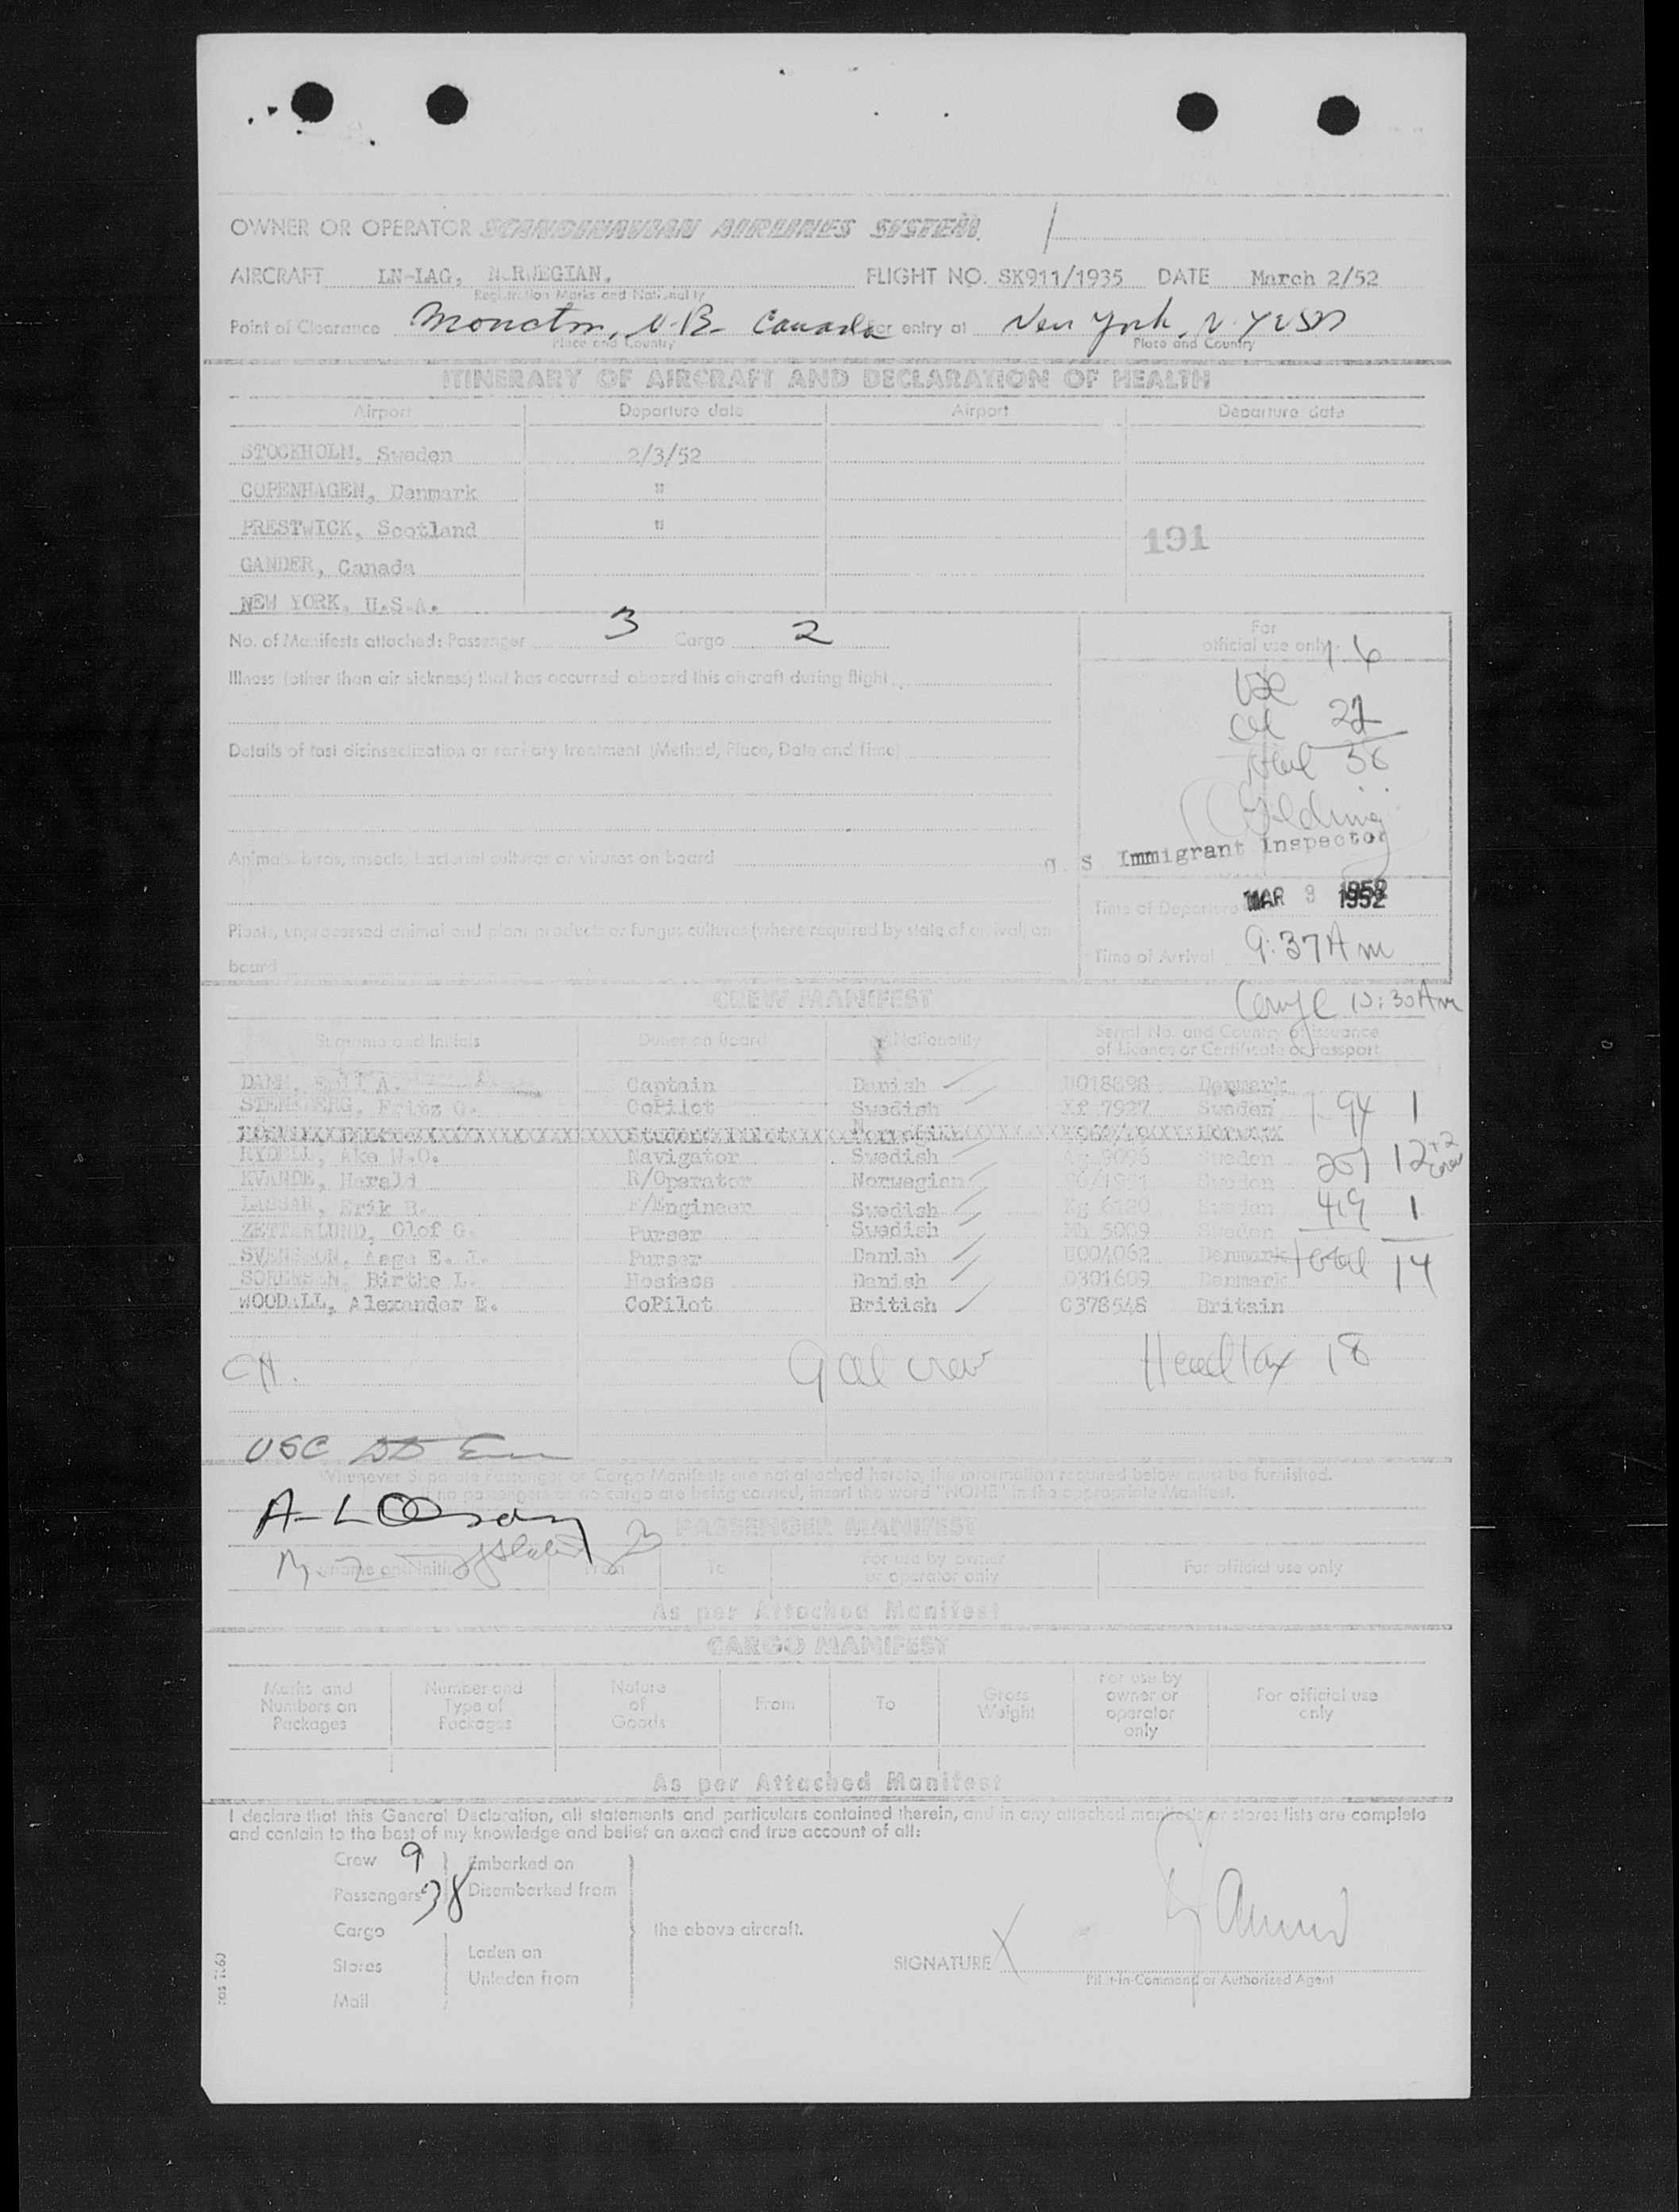 OWNER OR OPERATOR SCANDINAVIAN AIRLINES SYSTEM.
AIRCRAFT LN-LAG, NORWEGIAN. FLIGHT NO. SK911/1935 DATE March 2/52
Registration Marks and Nationality
Point of Clearance Moncton, N.B. Canada For entry at New York, N.Y USA
Place and Country Place and Country
ITINERARY OF AIRCRAFT AND DECLARATION OF HEALTH
Airport Departure date Airport Departure date
STOCKHOLM, Sweden 2/3/52
COPENHAGEN, Denmark "
PRESTWICK, Scotland "
191
GANDER, Canada
NEW YORK, U.S.A.
No. of Manifests attached: Passenger 3 Cargo 2
For official use only 16
Illness (other than air sickness) that has occurred aboard this aircraft during flight
USC
22
Details of last disinsectization or sanitary treatment (Method, Place, Date and Time)
Total 38
Golding
Animals, birds, insects, bacterial cultures or viruses on board
U. S Immigrant Inspector
Time of Departure MAR 3 1952
Plants, unprocessed animal and plant products or fungus cultures (where required by state of arrival) on
board
Time of Arrival 9:37 Am
CREW MANIFEST
10:30 Am
Surname and Initials Duties on Board Nationality Serial No. and Country of Issuance
of Licence or Certificate or Passport
DAMM, A. Captain Danish U018898 Denmark
STENSBERG, Fritz G. CoPilot Swedish Kf 7927 Sweden 94 1
Student Pilot Norwegian Norway
RYDELL, Ake W.O. Navigator Swedish 9096 Sweden 207 12 +2 crew
KVANDE, Harald R/Operator Norwegian 96/1951 Sweden
Erik B. F/Engineer Swedish Kg 6190 Sweden 419 1
ZETTERLUND, Olof G. Purser Swedish Mh 5009 Sweden
SVENSSON, Aage E. J. Purser Danish U004062 Denmark Total 14
SORENSEN, Birthe L. Hostess Danish 0301609 Denmark
WOODALL, Alexander E. CoPilot British C378548 Britain
CH. 9 al crew Head tax 18
USC
Whenever Separate Passenger or Cargo Manifests are not attached hereto, the information required below must be furnished.
no passengers or no cargo are being carried, insert the word "NONE" in the appropriate Manifest.
PASSENGER MANIFEST
Surname and Initials From To For use by owner or operator only For official use only
As per Attached Manifest
CARGO MANIFEST
Marks and Numbers on Packages Number and Type of Packages Nature of Goods From To Gross Weight For use by owner or operator only For official use only
As per Attached Manifest
I declare that this General Declaration, all statements and particulars contained therein, and in any attached manifests or stores lists are complete
and contain to the best of my knowledge and belief an exact and true account of all:
Crew 9 Embarked on
Passengers 38 Disembarked from
Cargo the above aircraft.
Stores Laden on
Unladen from
SIGNATURE X
Pilot-in-Command or Authorized Agent
Mail